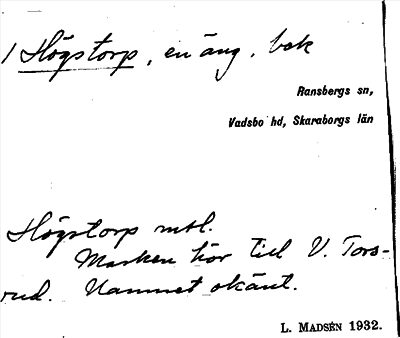 1 Högstorp, en äng. bok
Ransbergs sn,
Vadsbo hd, Skaraborgs län
Högstorp mtl.
Marken hör till V. Tors-
rud. Namnet okänt.
L. MADSÉN 1932.